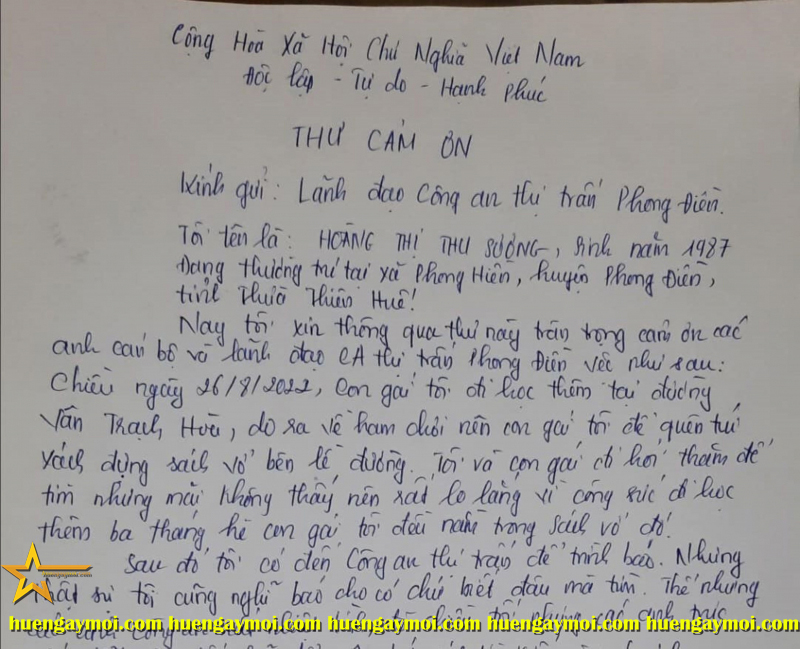 Cộng Hoà Xã Hội Chủ Nghĩa Việt Nam
Độc lập - Tự do - Hạnh phúc
THƯ CẢM ƠN
Kính gửi: Lãnh đạo Công an thị trấn Phong Điền.
Tôi tên là: HOÀNG THỊ THU SƯƠNG, sinh năm 1987
Đang thường trú tại xã Phong Hiền, huyện Phong Điền,
tỉnh Thừa Thiên Huế!
Nay tôi xin thông qua thư này trân trọng cảm ơn các
anh cán bộ và lãnh đạo CA thị trấn Phong Điền việc như sau:
Chiều ngày 26/8/2022, con gái tôi đi học thêm tại đường
Văn Trạch Hoà, do ra về ham chơi nên con gái tôi để quên túi
xách đựng sách vở bên lề đường. Tôi và con gái có hỏi thăm để
tìm nhưng mãi không thấy nên rất lo lắng vì công sức đi học
thêm ba tháng hè con gái tôi đều nằm trong sách vở đó.
Sau đó tôi có đến Công an thị trấn để trình báo. Nhưng
thật sự tôi cũng nghĩ báo cho có chứ biết đâu mà tìm. Thế nhưng
huengaymoi.com
huengaymoi.com huengaymoi.com huengaymoi.com huengaymoi.com huengaymoi.com